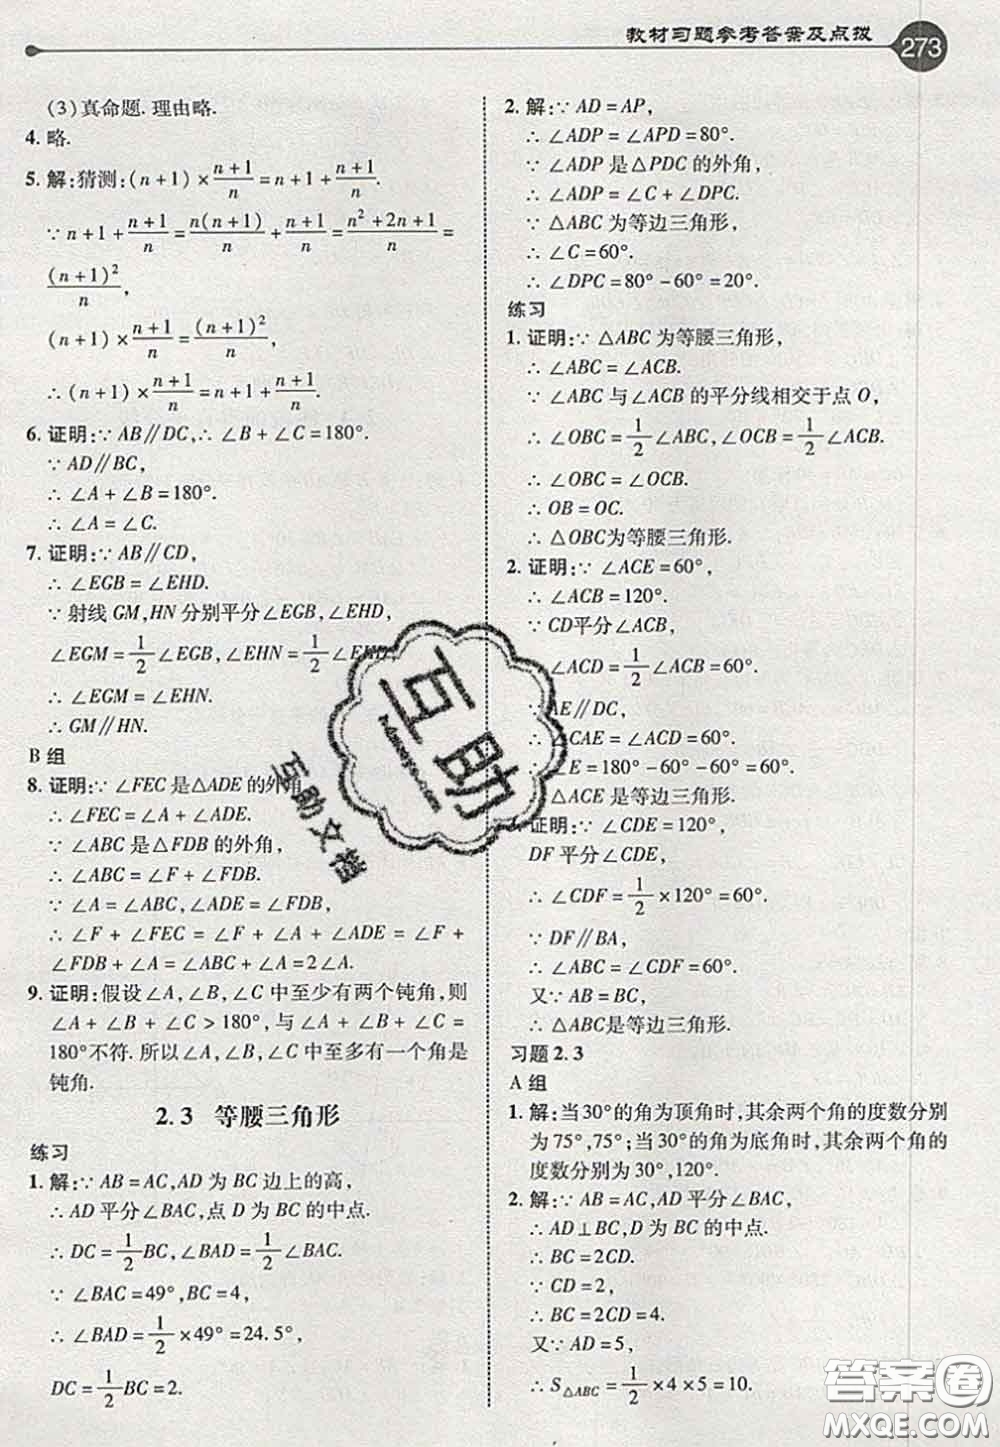 教材习题参考答案及点拨 273
(3)真命题. 理由略.
4. 略.
5. 解:猜测:(n+1)×(n+1)/n=n+1+(n+1)/n.
∵n+1+(n+1)/n=n(n+1)/n+(n+1)/n=(n²+2n+1)/n=
(n+1)²/n,
(n+1)×(n+1)/n=(n+1)²/n,
∴(n+1)×(n+1)/n=n+1+(n+1)/n.
6. 证明:∵AB∥DC,∴∠B+∠C=180°.
∵AD∥BC,
∴∠A+∠B=180°.
∴∠A=∠C.
7. 证明:∵AB∥CD,
∴∠EGB=∠EHD.
∵射线GM,HN分别平分∠EGB,∠EHD,
∠EGM=1/2∠EGB,∠EHN=1/2∠EHD.
∴∠EGM=∠EHN.
∴GM∥HN.
B 组
8. 证明:∵∠FEC是△ADE的外角,
∴∠FEC=∠A+∠ADE.
∵∠ABC是△FDB的外角,
∴∠ABC=∠F+∠FDB.
∵∠A=∠ABC,∠ADE=∠FDB,
∴∠F+∠FEC=∠F+∠A+∠ADE=∠F+
∠FDB+∠A=∠ABC+∠A=2∠A.
9. 证明:假设∠A,∠B,∠C中至少有两个钝角,则
∠A+∠B+∠C>180°,与∠A+∠B+∠C=
180°不符. 所以∠A,∠B,∠C中至多有一个角是
钝角.
2.3 等腰三角形
练习
1. 解:∵AB=AC,AD为BC边上的高,
∴AD平分∠BAC,点D为BC中点.
∴DC=1/2BC,∠BAD=1/2∠BAC.
∵∠BAC=49°,BC=4,
∴∠BAD=1/2×49°=24.5°,
DC=1/2BC=2.
2. 解:∵AD=AP,
∴∠ADP=∠APD=80°.
∵∠ADP是△PDC的外角,
∴∠ADP=∠C+∠DPC.
∵△ABC为等边三角形,
∴∠C=60°.
∴∠DPC=80°-60°=20°.
练习
1. 证明:∵△ABC为等腰三角形,
∴∠ABC=∠ACB.
∵∠ABC与∠ACB的平分线相交于点O,
∴∠OBC=1/2∠ABC,∠OCB=1/2∠ACB.
∴∠OBC=∠OCB.
∴OB=OC.
∴△OBC为等腰三角形.
2. 证明:∵∠ACE=60°,
∴∠ACB=120°.
∵CD平分∠ACB,
∴∠ACD=1/2∠ACB=60°.
∵AE∥DC,
∴∠CAE=∠ACD=60°.
∴∠E=180°-60°-60°=60°.
∴△ACE是等边三角形.
证明:∵∠CDE=120°,
DF平分∠CDE,
∴∠CDF=1/2×120°=60°.
∵DF∥BA,
∴∠ABC=∠CDF=60°.
又∵AB=BC,
∴△ABC是等边三角形.
习题2.3
A 组
1. 解:当30°的角为顶角时,其余两个角的度数分别
为75°,75°;当30°的角为底角时,其余两个角的
度数分别为30°,120°.
2. 解:∵AB=AC,AD平分∠BAC,
∴AD⊥BC,D为BC的中点.
∴BC=2CD.
∵CD=2,
∴BC=2CD=4.
又∵AD=5,
∴S△ABC=1/2×4×5=10.
互助
互助文档
答案圈
MXQE.COM